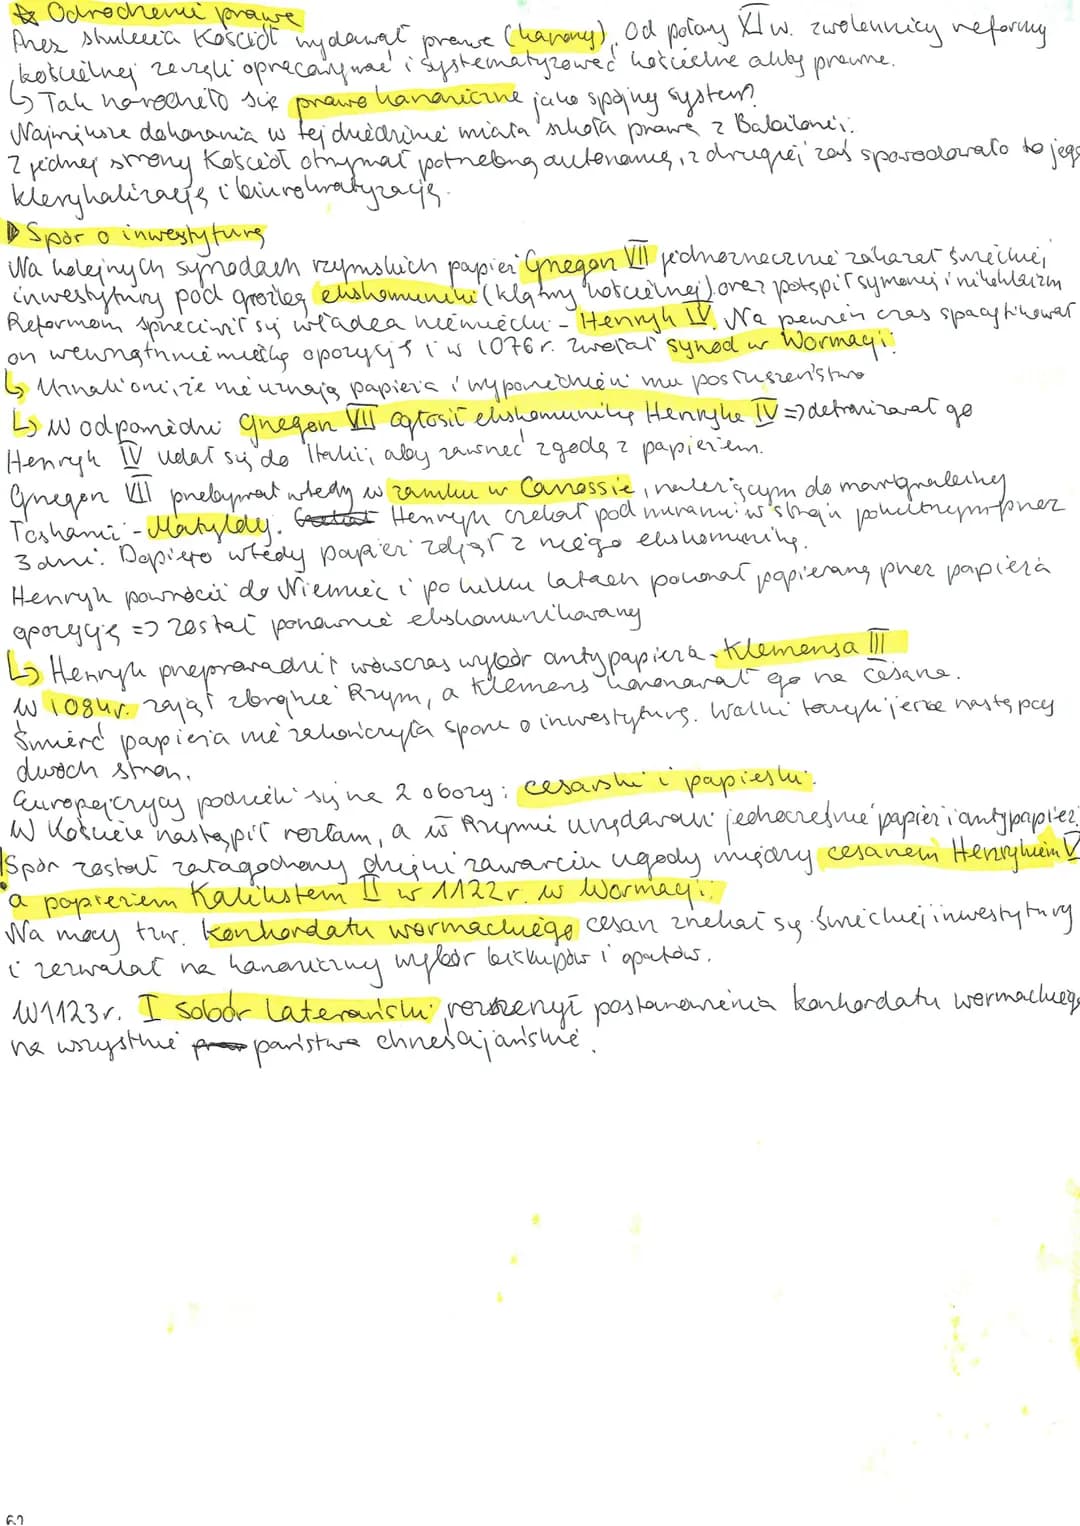 ☆ Odrodzenie prawa
Przez stulecia Kościół wydawał prawa (kanony). Od połowy XI w. zwolennicy reformy
kościelnej zaczęli opracowywać i systematyzować kościelne akty prawne.
↳ Tak narodziło się prawo kanoniczne jako spójny system.
Największe dokonania w tej dziedzinie miała szkoła prawa z
Z jednej strony Kościół otrzymał potrzebną autonomię, z drugiej zaś spowodowało to jego
klerykalizację i biurokratyzację.
▶ Spór o inwestyturę
Na kolejnych synodach rzymskich papież Grzegorz VII jednoznacznie zakazał świeckiej
inwestytury pod groźbą ekskomuniki (klątwy kościelnej) oraz potępił symonię i nikolaizm
Reformom sprzeciwił się władca niemiecki - Henryk IV. Na pewien czas spacyfikował
on wewnątrzniemiecką opozycję i w 1076 r. zwołał synod w Wormacji:
↳ Uznali oni, że nie uznają papieża i wypowiedzieli mu posłuszeństwo
↳ W odpowiedzi Grzegorz VII ogłosił ekskomunikę Henryka IV => detronizował go
Henryk IV udał się do Italii, aby zawrzeć zgodę z papieżem.
Grzegorz VII przebywał wtedy w zamku w Canossie, należącym do margrabiny
Toskanii - Matyldy. Henryk czekał pod murami w stroju pokutnym przez
3 dni. Dopiero wtedy papież zdjął z niego ekskomunikę.
Henryk powrócił do Niemiec i po kilku latach pokonał popieraną przez papieża
opozycję => został ponownie ekskomunikowany
↳ Henryk przeprowadził wówczas wybór antypapieża - Klemensa III
W 1084r. zajął zbrojnie Rzym, a Klemens koronował go na cesarza.
Śmierć papieża nie zakończyła sporu o inwestyturę. Walki toczyli jeszcze następcy
dwóch stron.
Europejczycy podzielili się na 2 obozy: cesarski i papieski.
W Kościele nastąpił rozłam, a w Rzymie urzędowali jednocześnie papież i antypapież.
!Spór został załagodzony dzięki zawarciu ugody między cesarzem Henrykiem V
a papieżem Kalikstem II w 1122 r. w Wormacji:
Na mocy tzw. konkordatu wormackiego cesarz zrzekał się świeckiej inwestytury
i zezwalał na kanoniczny wybór biskupów i opatów.
W 1123r. I sobór laterański rozszerzył postanowienia konkordatu wormackiego
na wszystkie państwa chrześcijańskie.